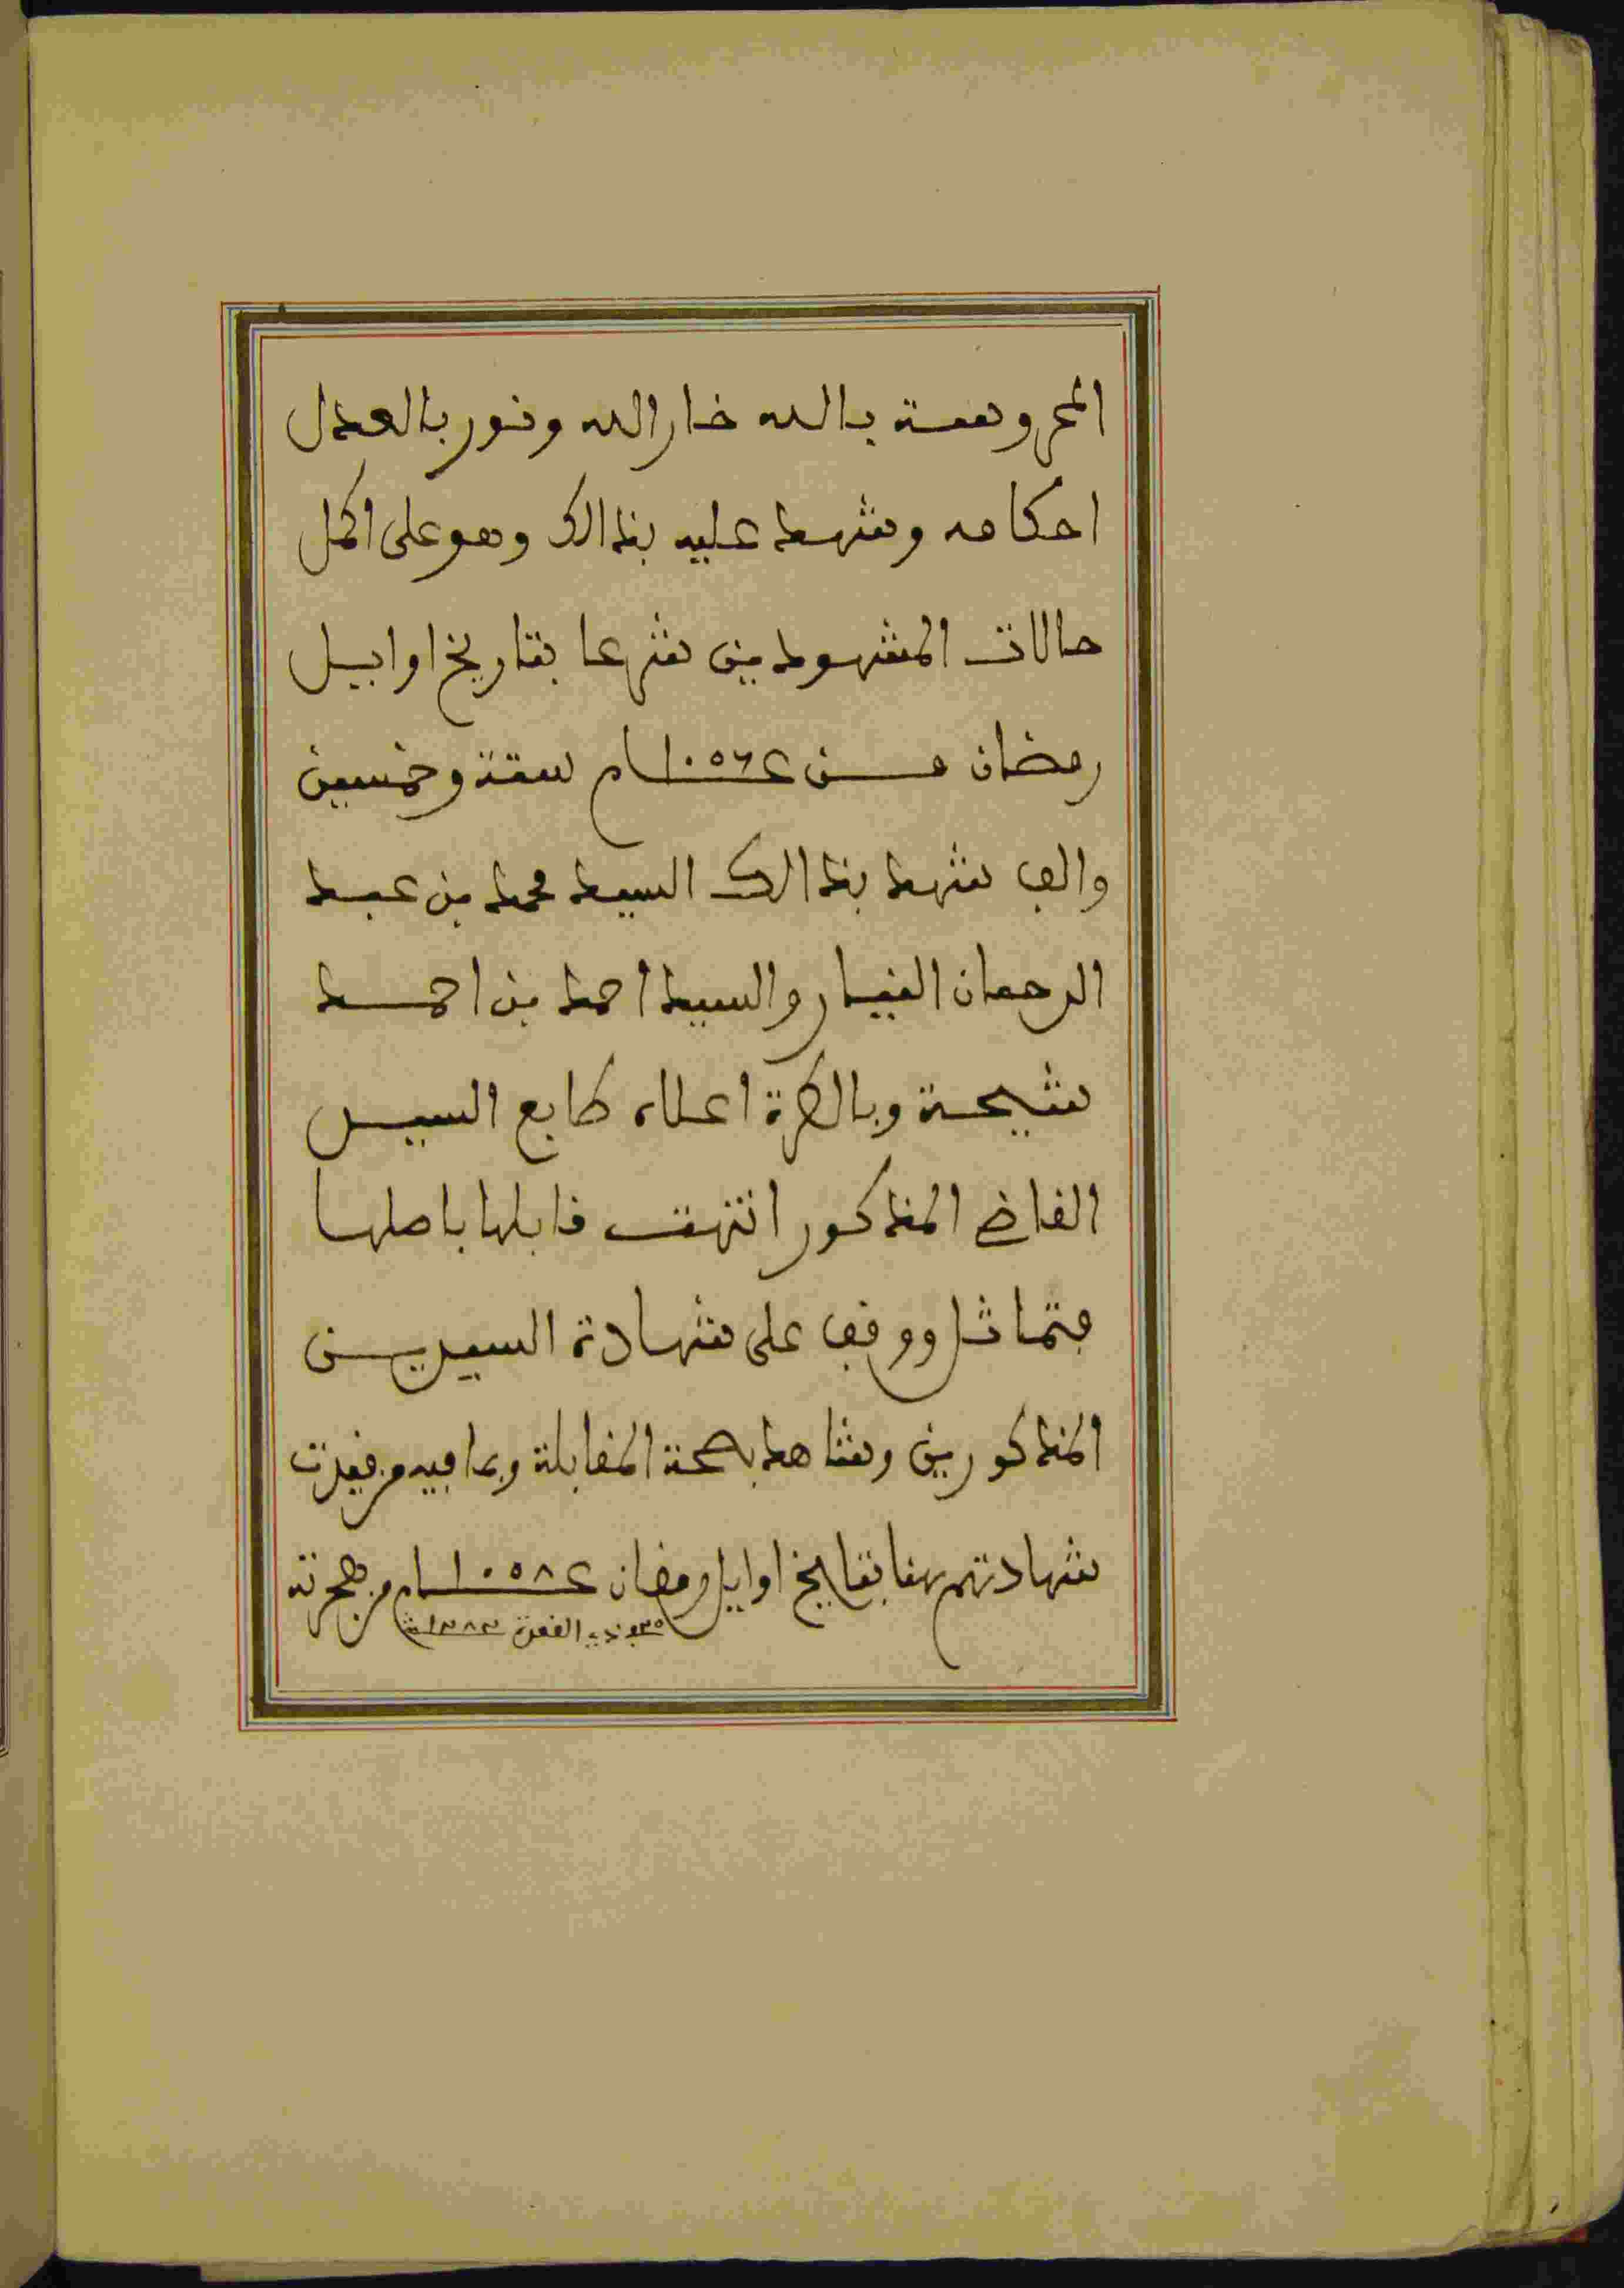 المحروسة بالله خار الله ونور بالعدل
احكامه وشهد عليه بذالك وهو على اكمل
حالات المشهود مين شرعا بتاريخ اوايل
رمضان مــن عـ١٠٥٦ـام ستة وخمسين
والف شهد بذالك السيد محمد بن عبد
الرحمان النيار والسيد احمد بن احمد
شيحة وبالطرة اعلاه طابع السيد
القاضي المذكور انتهت قابلها باصلها
متماثل ووقف على شهادة السيدين
المذكورين وشاهد بصحة المقابلة وبما فيه من قيدت
شهادتهم بها بتاريخ اوايل رمضان عـ١٠٥٨ـام من هجرته
القعدة